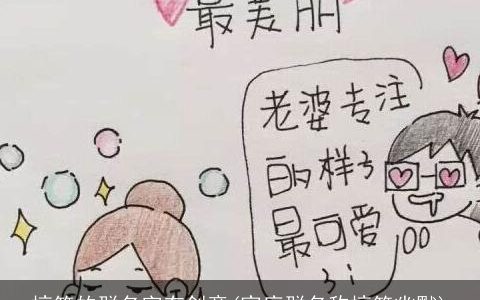 最美丽
老婆专注
的样子
最可爱
了!
搞笑的群名字有创意(家庭群名称搞笑幽默)